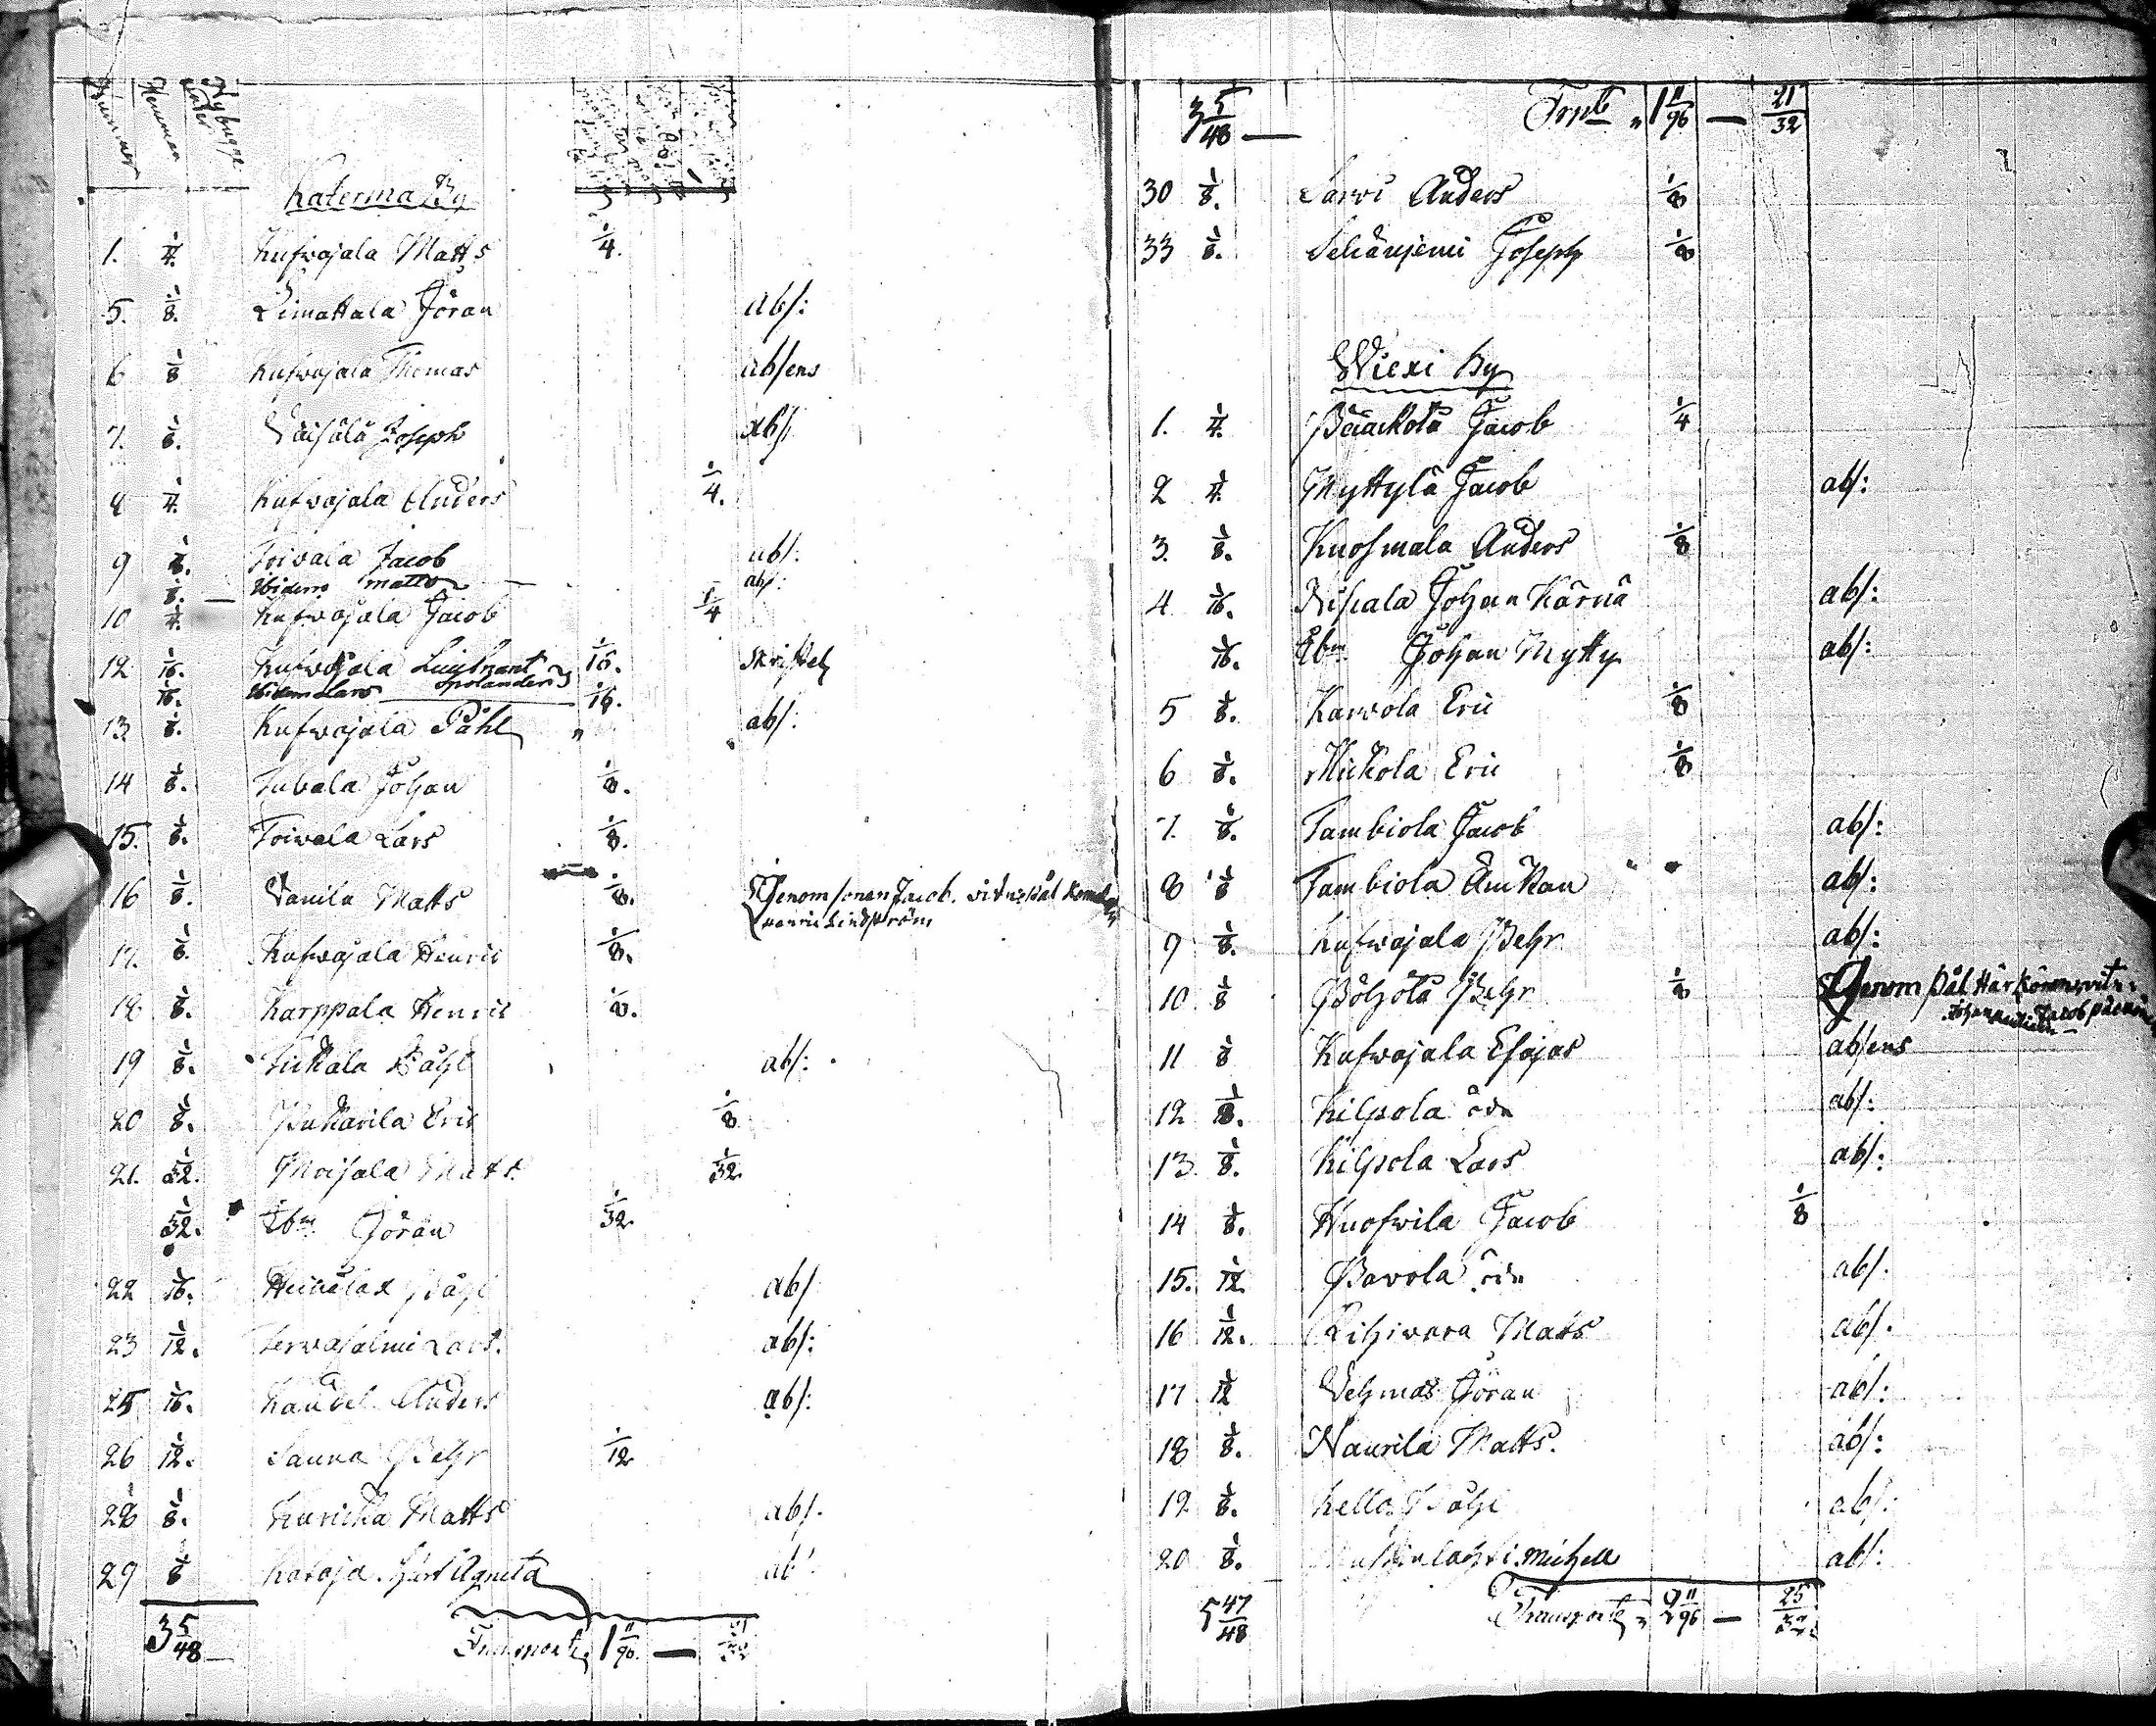 Nummer Hemman Nybygge
Katerma By
1. 1/4. Kufwajala Matts 1/4.
5. 1/8. Limattala Jöran abs:
6 1/8 Kufwajala Thomas absens
7. 1/8. Väisälä Joseph abs
8 1/4. Kufwajala Anders 1/4.
9 1/8. Toivala Jacob abs:
1/8. — Ibidem matts — abs:
10 1/4. Kufwajala Jacob 1/4
12 1/16. Kufwajala Lieutnant 1/16. Skriftel
1/16. Ibidem Lars Spolanders 1/16.
13 1/8. Kufwajala Påhl " abs:
14 1/8. Tubala Johan 1/8.
15. 1/8. Toivala Lars 1/8.
16 1/8. Vanila Matts 1/8. Genom sonen Jacob. vitne Pål
Lindström
17. 1/8. Kufwajala Henric 1/8.
18 1/8. Karppala Henric 1/8.
19 1/8. Tickala Påhl abs:
20 1/8. Puckarila Eric 1/8
21. 1/32. Moisala Matts 1/32.
1/32. Ibm Jöran 1/32.
22 1/16. Heinälax Påhl abs
23 1/12. Terwasalmi Lars. abs:
25 1/16. Anders abs:
26 1/12. Sauna Pehr 1/12
28 1/8. Kuricka Matts abs.
29 1/8 Kataja Agneta abs:
3 5/48 — Transport 1 11/96. — 21/32
3 5/48 — Trpt " 1 11/96 — 21/32
30 1/8. Sarvi Anders 1/8
33 1/8. Seliänjemi Joseph 1/8
Wiexi by
1. 1/4. Pääckölä Jacob 1/4
2 1/4. Myttylä Jacob abs:
3. 1/8. Kuosmala Anders 1/8
4. 1/16. Johan Kärnä abs:
1/16. Ibm Johan Mytty abs:
5 1/8. Karvola Eric 1/8
6 1/8. Mickola Eric 1/8
7. 1/8. Tambiola Jacob abs:
8 1/8 Tambiola Änkan abs:
9 1/8. Kufwajala Pehr abs:
10. 1/8 Pöhölä Pehr 1/8 Genom Pål Härkönen vitn:
Jacob
11 1/8 Kufwajala Esajas absens
12 1/8. Kilpola öde abs:
13. 1/8. Kilpola Lars abs:
14 1/8. Huofwila Jacob 1/8
15. 1/12. Pavola öde abs.
16 1/12. Rihiwara Matts abs.
17 1/12 Vehmas Jöran abs:
18 1/8. Naurila Matts. abs:
19. 1/8. Kello Påhl abs:
20 1/8. Michell abs:
5 47/48 Transport 2 11/96 — 25/32